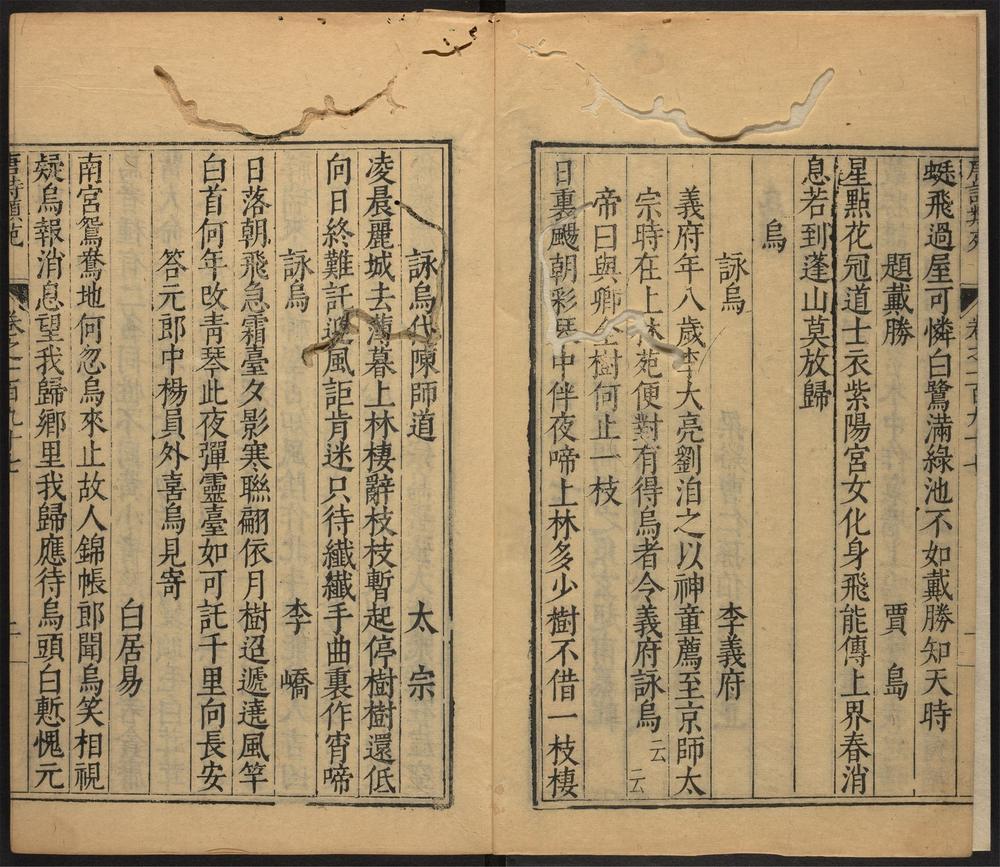 蜓飛過屋可憐白鷺滿綠池不如戴勝知天時
題戴勝 賈島
星點花冠道士衣紫陽宮女化身飛能傳上界春消
息若到蓬山莫放歸
烏
詠烏 李義府
義府年八歲李大亮劉洎之以神童薦至京師太
宗時在上林苑便對有得烏者令義府詠烏云云
帝曰與卿全樹何止一枝
日裏颺朝彩琴中伴夜啼上林多少樹不借一枝棲
詠烏代陳師道 太宗
凌晨麗城去薄暮上林棲辭枝枝暫起停樹樹還低
向日終難託迎風詎肯迷只待纖纖手曲裏作宵啼
詠烏 李嶠
日落朝飛急霜臺夕影寒聯翩依月樹迢遞遶風竿
白首何年改青琴此夜彈靈臺如可託千里向長安
答元郎中楊員外喜烏見寄 白居易
南宮鴛鴦地何忽烏來止故人錦帳郎聞烏笑相視
疑烏報消息望我歸鄉里我歸應待烏頭白慙愧元